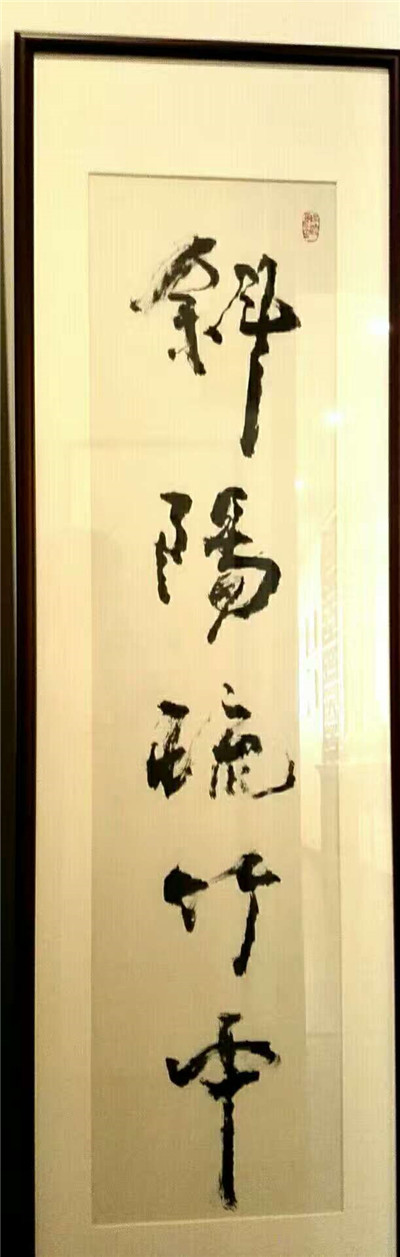 斜陽疏竹中